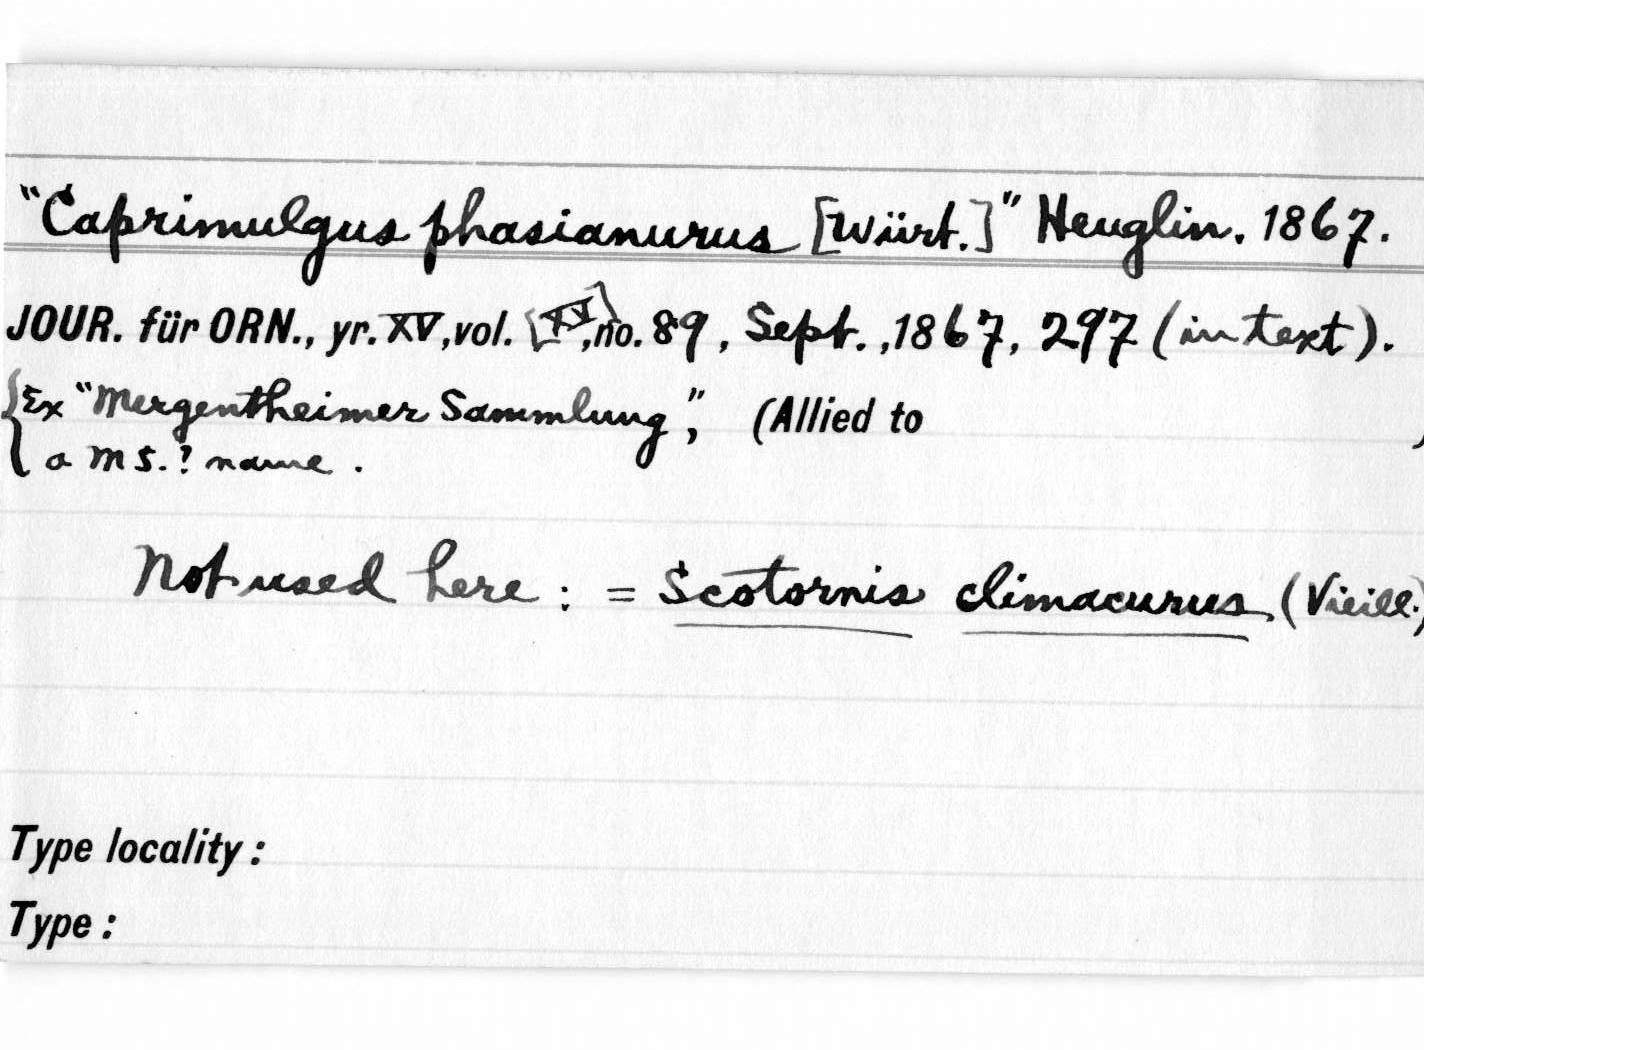 "Caprimulgus phasianurus [Würt.]" Heuglin. 1867.
JOUR. für ORN., yr. XV, vol. [XV], no. 89, Sept., 1867, 297 (in text).
{Ex "Mergentheimer Sammlung", (Allied to )
a MS.? name.
Not used here: = Scotornis climacurus (Vieill.)
Type locality:
Type: